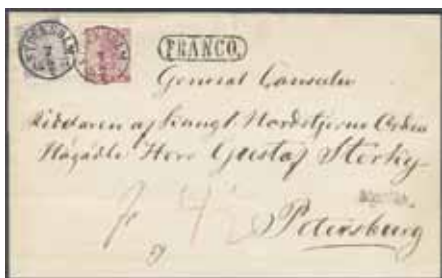 STOCKHOLM
FRANCO.
General Consuln
Riddaren af Kongl Nordstjerne Orden
Högädle Herr Gustaf Sterky
Petersburg